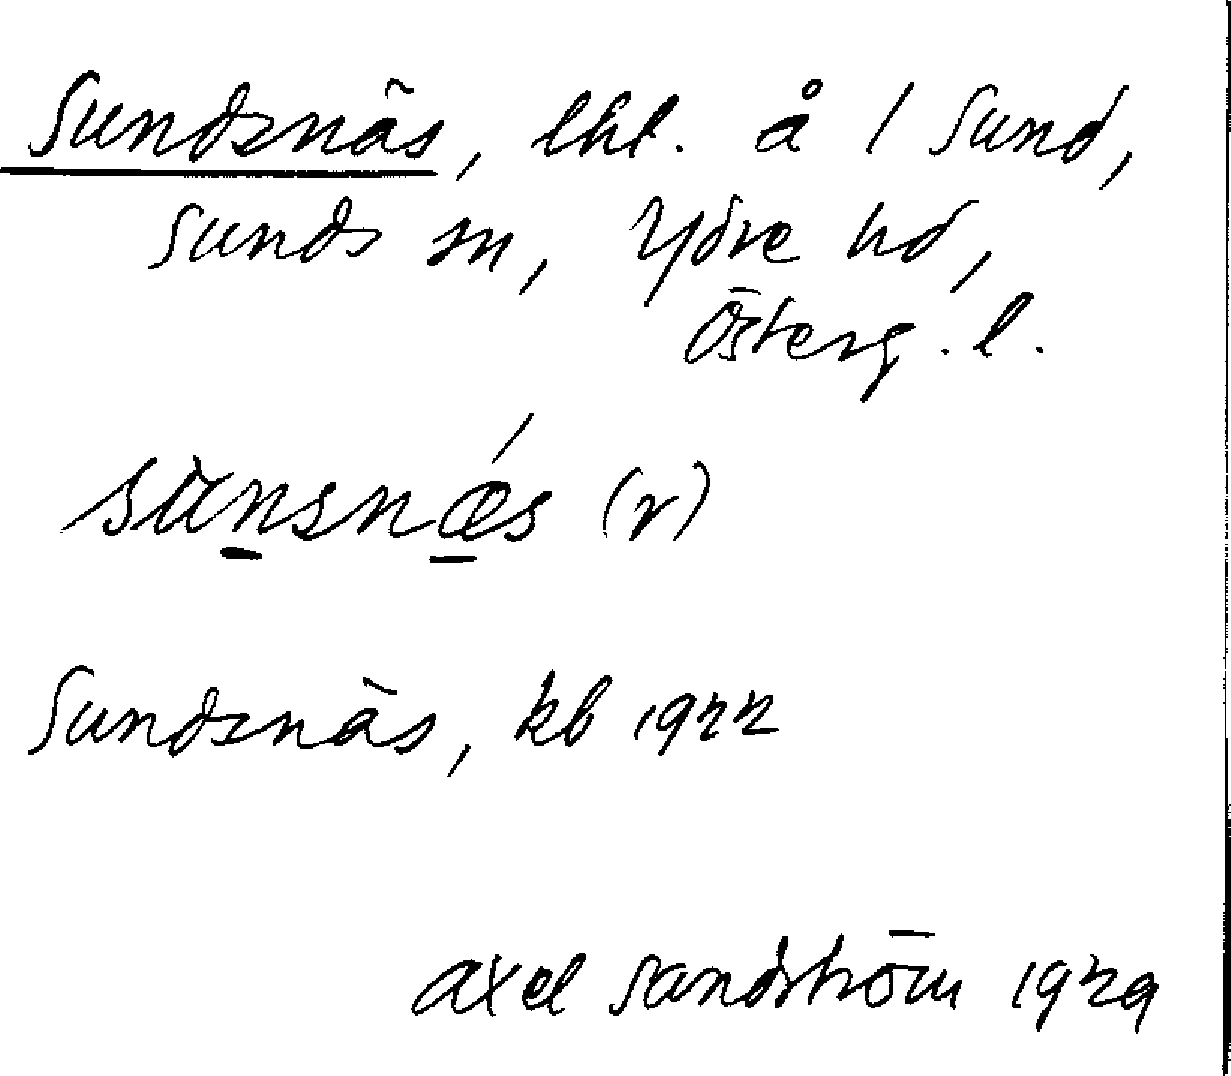 Sundsnäs, lht. å 1 Sund,
Sunds sn, Ydre hd,
Österg. l.
sùnsnǽs (r)
Sundsnäs, kb 1922
Axel Sandström 1929